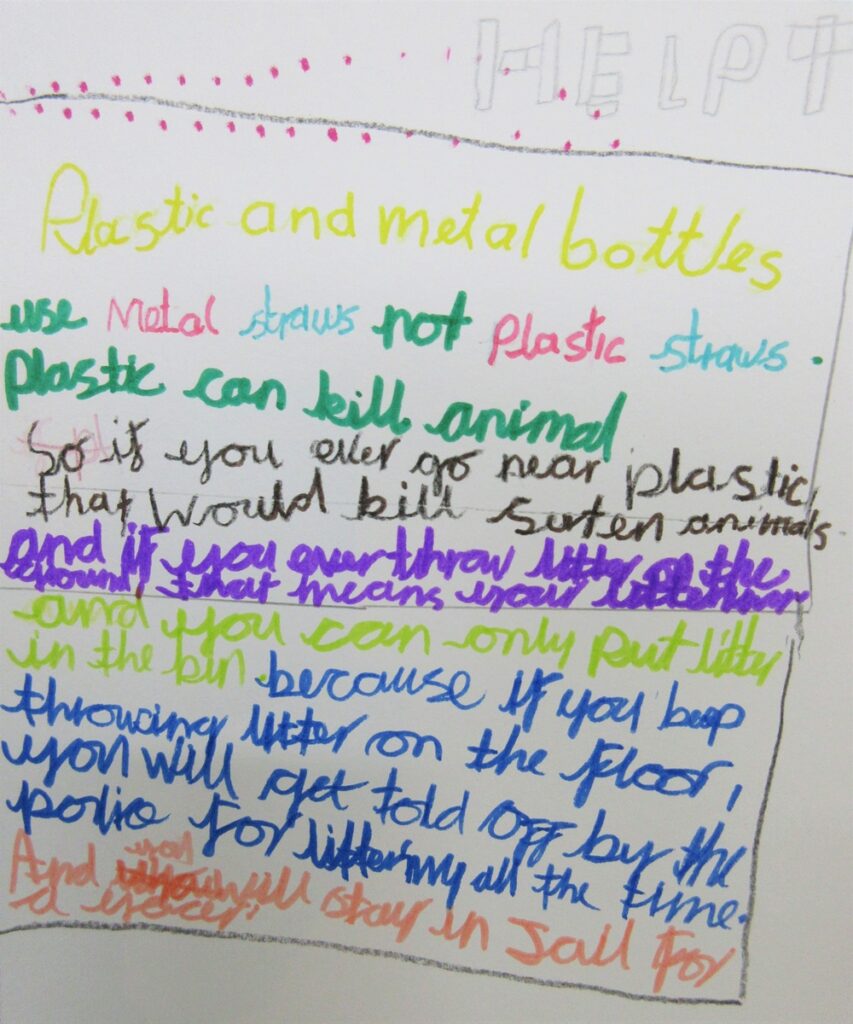 HELP T
Plastic and metal bottles
use metal straws not plastic straws.
plastic can kill animal
So if you ever go near plastic,
that would kill surten animals
and if you ever throw litter on the
ground, that means your
and you can only put litter
in the bin. because if you keep
throwing litter on the floor,
you will get told off by the
police for littering all the time.
And you will stay in Jail for
a